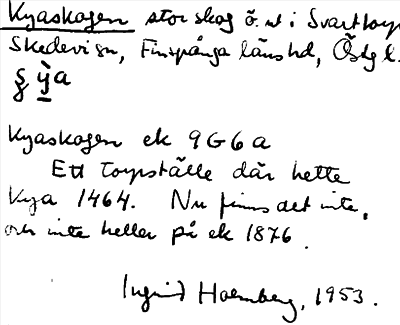 Kyaskogen stor skog ö. ut i Svarttorp
Skedevi sn, Finspånga länshd, Östg l.
§ ỳa
Kyaskogen ek 9G6a
Ett torpställe där hette
Kya 1464. Nu finns det inte,
och inte heller på ek 1876.
Ingrid Holmberg, 1953.